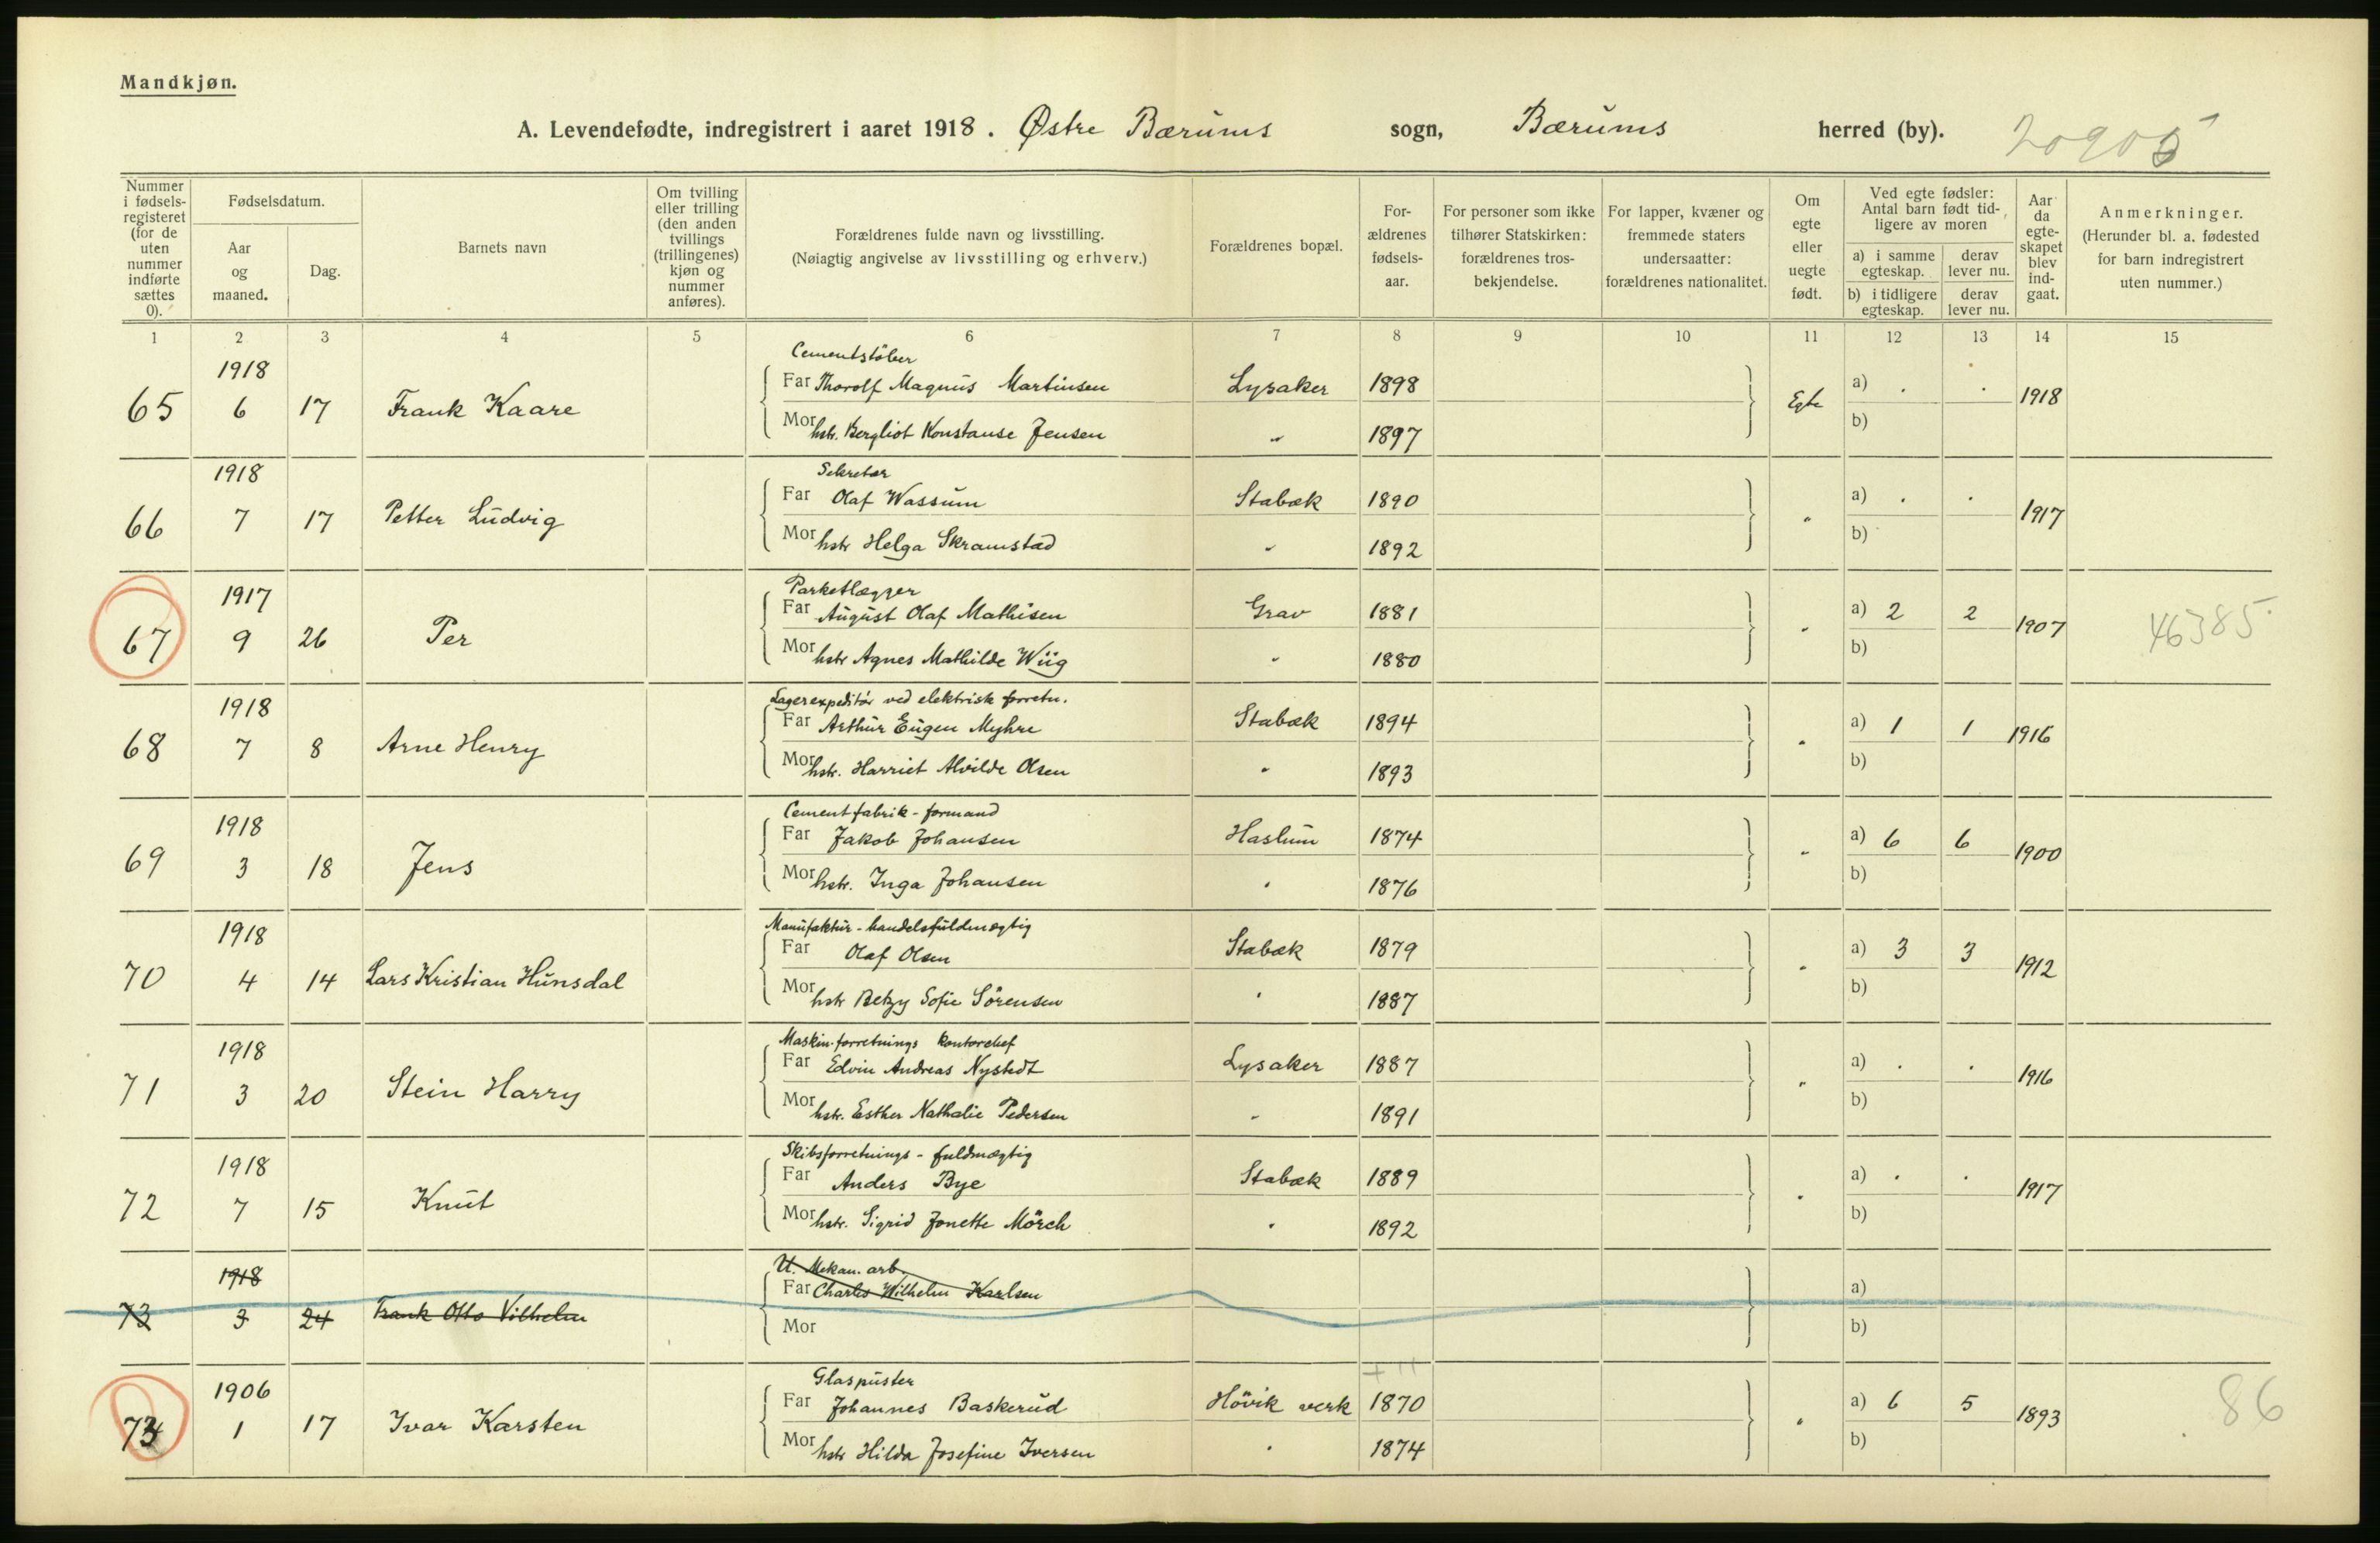 Mandkjøn.
A. Levendefødte, indregistrert i aaret 1918. Østre Bærums sogn, Bærums herred (by). 20905
Nummer i fødsels-registeret (for de uten nummer indførte sættes 0).
Fødselsdatum.
Aar og maaned.
Dag.
Barnets navn
Om tvilling eller trilling (den anden tvillings (trillingenes) kjøn og nummer anføres).
Forældrenes fulde navn og livsstilling.
(Nøiagtig angivelse av livsstilling og erhverv.)
Forældrenes bopæl.
For-ældrenes fødsels-aar.
For personer som ikke tilhører Statskirken: forældrenes tros-bekjendelse.
For lapper, kvæner og fremmede staters undersaatter: forældrenes nationalitet.
Om egte eller uegte født.
Ved egte fødsler: Antal barn født tid-ligere av moren
a) i samme egteskap.
derav lever nu.
b) i tidligere egteskap.
derav lever nu.
Aar da egte-skapet blev ind-gaat.
Anmerkninger.
(Herunder bl. a. fødested for barn indregistrert uten nummer.)
1 2 3 4 5 6 7 8 9 10 11 12 13 14 15
Cementstöber
1918
65 6 17 Frank Kaare Far Thorolf Magnus Martinsen Lysaker 1898 Egte a) . . 1918
Mor hstr. Bergliot Konstanse Jensen " 1897 b)
Sekretær
1918
66 7 17 Petter Ludvig Far Olaf Wassum Stabæk 1890 " a) . . 1917
Mor hstr Helga Skramstad " 1892 b)
Parketlægger
1917
67 9 26 Per Far August Olaf Mathisen Grav 1881 " a) 2 2 1907 46385
Mor hstr Agnes Mathilde Wiig " 1880 b)
Lagerexpeditör ved elektrisk forretn.
1918
68 7 8 Arne Henry Far Arthur Eugen Myhre Stabæk 1894 " a) 1 1 1916
Mor hstr. Harriet Alvilde Olsen " 1893 b)
Cementfabrik-formand
1918
69 3 18 Jens Far Jakob Johansen Haslum 1874 " a) 6 6 1900
Mor hstr. Inga Johansen " 1876 b)
Manufaktur-handelsfuldmægtig
1918
70 4 14 Lars Kristian Hunsdal Far Olaf Olsen Stabæk 1879 " a) 3 3 1912
Mor hstr Betzy Sofie Sörensen " 1887 b)
Maskin-forretnings kontorchef
1918
71 3 20 Stein Harry Far Edvin Andreas Nystedt Lysaker 1887 " a) . . 1916
Mor hstr. Esther Nathalie Pedersen " 1891 b)
Skibsforretnings-fuldmægtig
1918
72 7 15 Knut Far Anders Bye Stabæk 1889 " a) . . 1917
Mor hstr. Sigrid Jonette Mörch " 1892 b)
U. Mekan. arb.
1918
73 3 24 Frank Otto Vilhelm Far Charles Wilhelm Karlsen a)
Mor b)
Glaspuster
1906
73 1 17 Ivar Karsten Far Johannes Baskerud Hövik verk 1870 " a) 6 5 1893 86
Mor hstr Hilda Josefine Iversen " 1874 b)